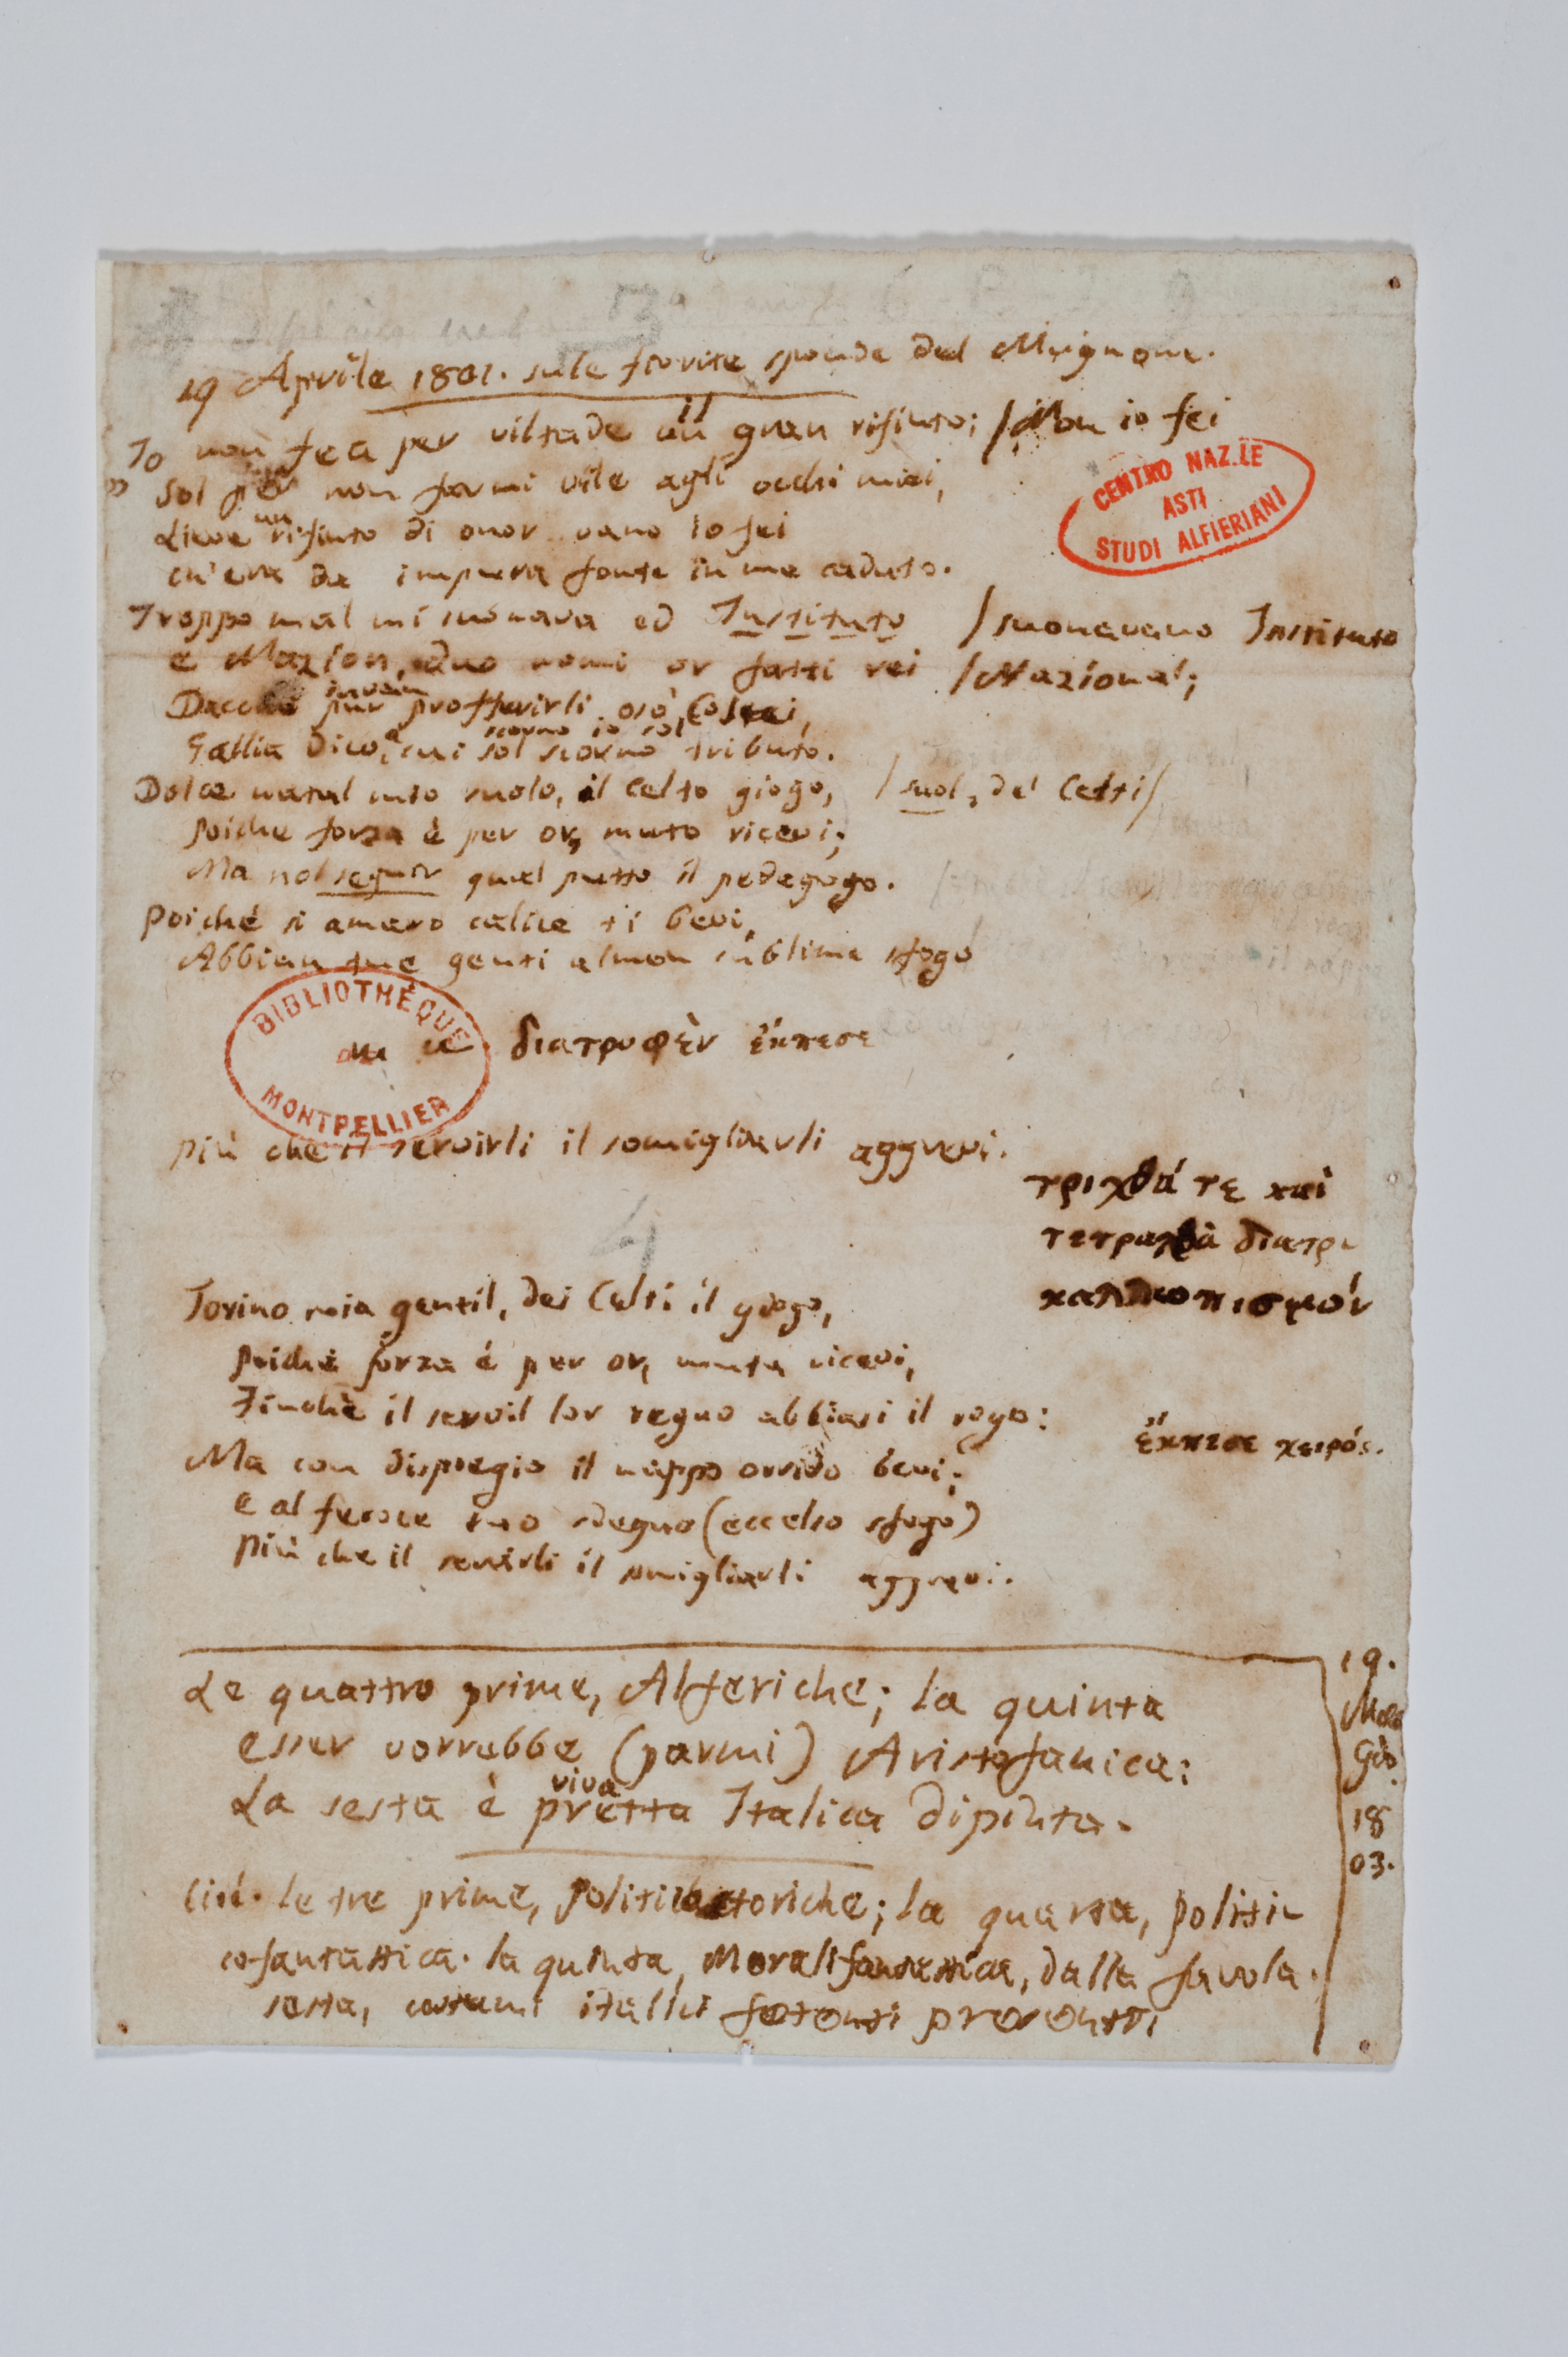 3ª
19 Aprile 1801. sule fiorite sponde del Mugnone.
Io non fea per viltade un il gran rifiuto; / Non io fei
" Sol per non farmi vile agli occhi miei,
Lieve un rifiuto di onor vano io fei
ch'era da impura fonte in me caduto.
Troppo mal mi suonava ed Instituto / suonavano Instituto
e Nazion, duo nomi or fatti rei / Nazional;
Dacchè pur invan profferirli osò Costei,
Gallia dico, a cui sol scorno tributo. scorno io sol
Dolce natal mio suolo, il celto giogo, / suol, dei Celti /
Poiche forza è per or, muto ricevi;
Ma nol seguir qual putto il pedagogo.
Poiché sì amaro calice ti bevi,
Abbian tue genti almen sublime sfogo
διατρυφὲν ἔκπεσε
Più che il servirli il somigliarli aggrevi.
τριχθά τε καὶ
τετραχθὰ διατρυ
καλλωπισμόν
4
Torino mia gentil, dei Celti il giogo,
Poichè forza è per or, muta ricevi,
Finchè il servil lor regno abbiasi il rogo:
ἔκπεσε χειρός.
Ma con dispregio il nappo orrido bevi;
e al feroce tuo sdegno (eccelso sfogo)
Più che il servirli il somigliarli aggrevi.
Le quattro prime, Alferiche; la quinta
esser vorrebbe (parmi) Aristofanica:
La sesta è pretta viva Italica dipinta.
19.
Gio.
18
03.
Cioè. le tre prime, Politicostoriche; la quarta, Politi-
cofantastica. la quinta, Moralifantastica, dalla favola.
sesta, costumi italici fetenti presenti.
CENTRO NAZ.LE
ASTI
STUDI ALFIERIANI
BIBLIOTHÈQUE
MONTPELLIER